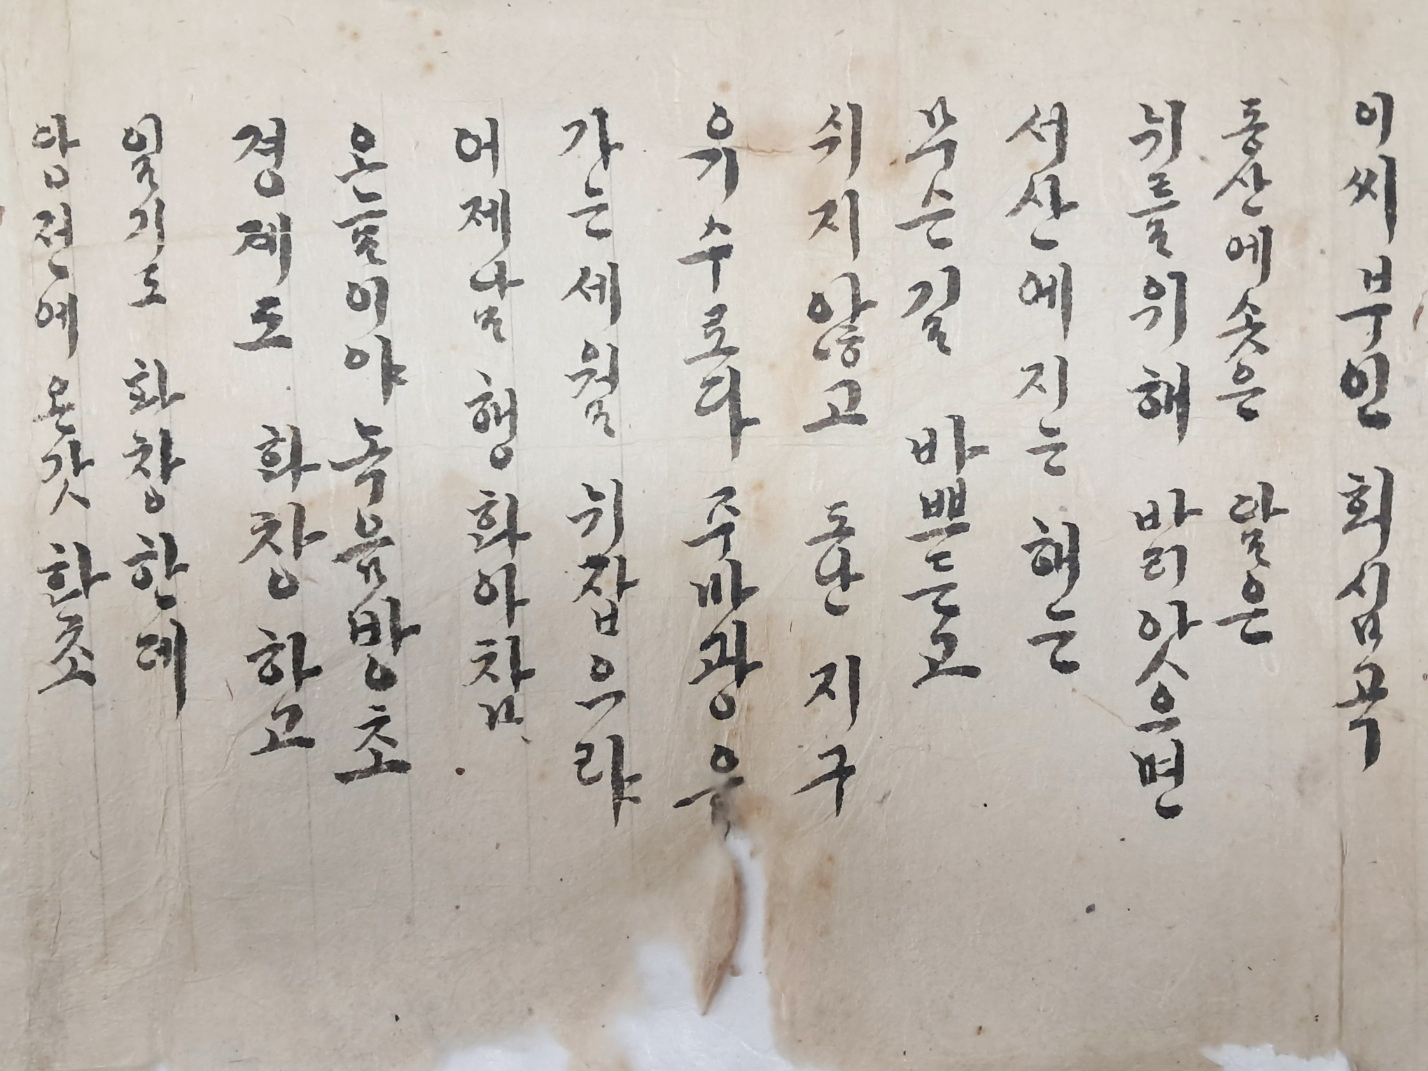 이씨부인 회심곡
동산에 솟은 달은
뉘를 위해 발리앗으면
서산에 지는 해는
무슨 길 바쁘든고
쉬지 않고 도난 지구
유기수로다 주마광음
가는 세월 뉘 잡으랴
어제날 행화아참
온늘이야 녹음방초
경제도 화창하고
일기도 화창한데
앞전에 온갓 화초